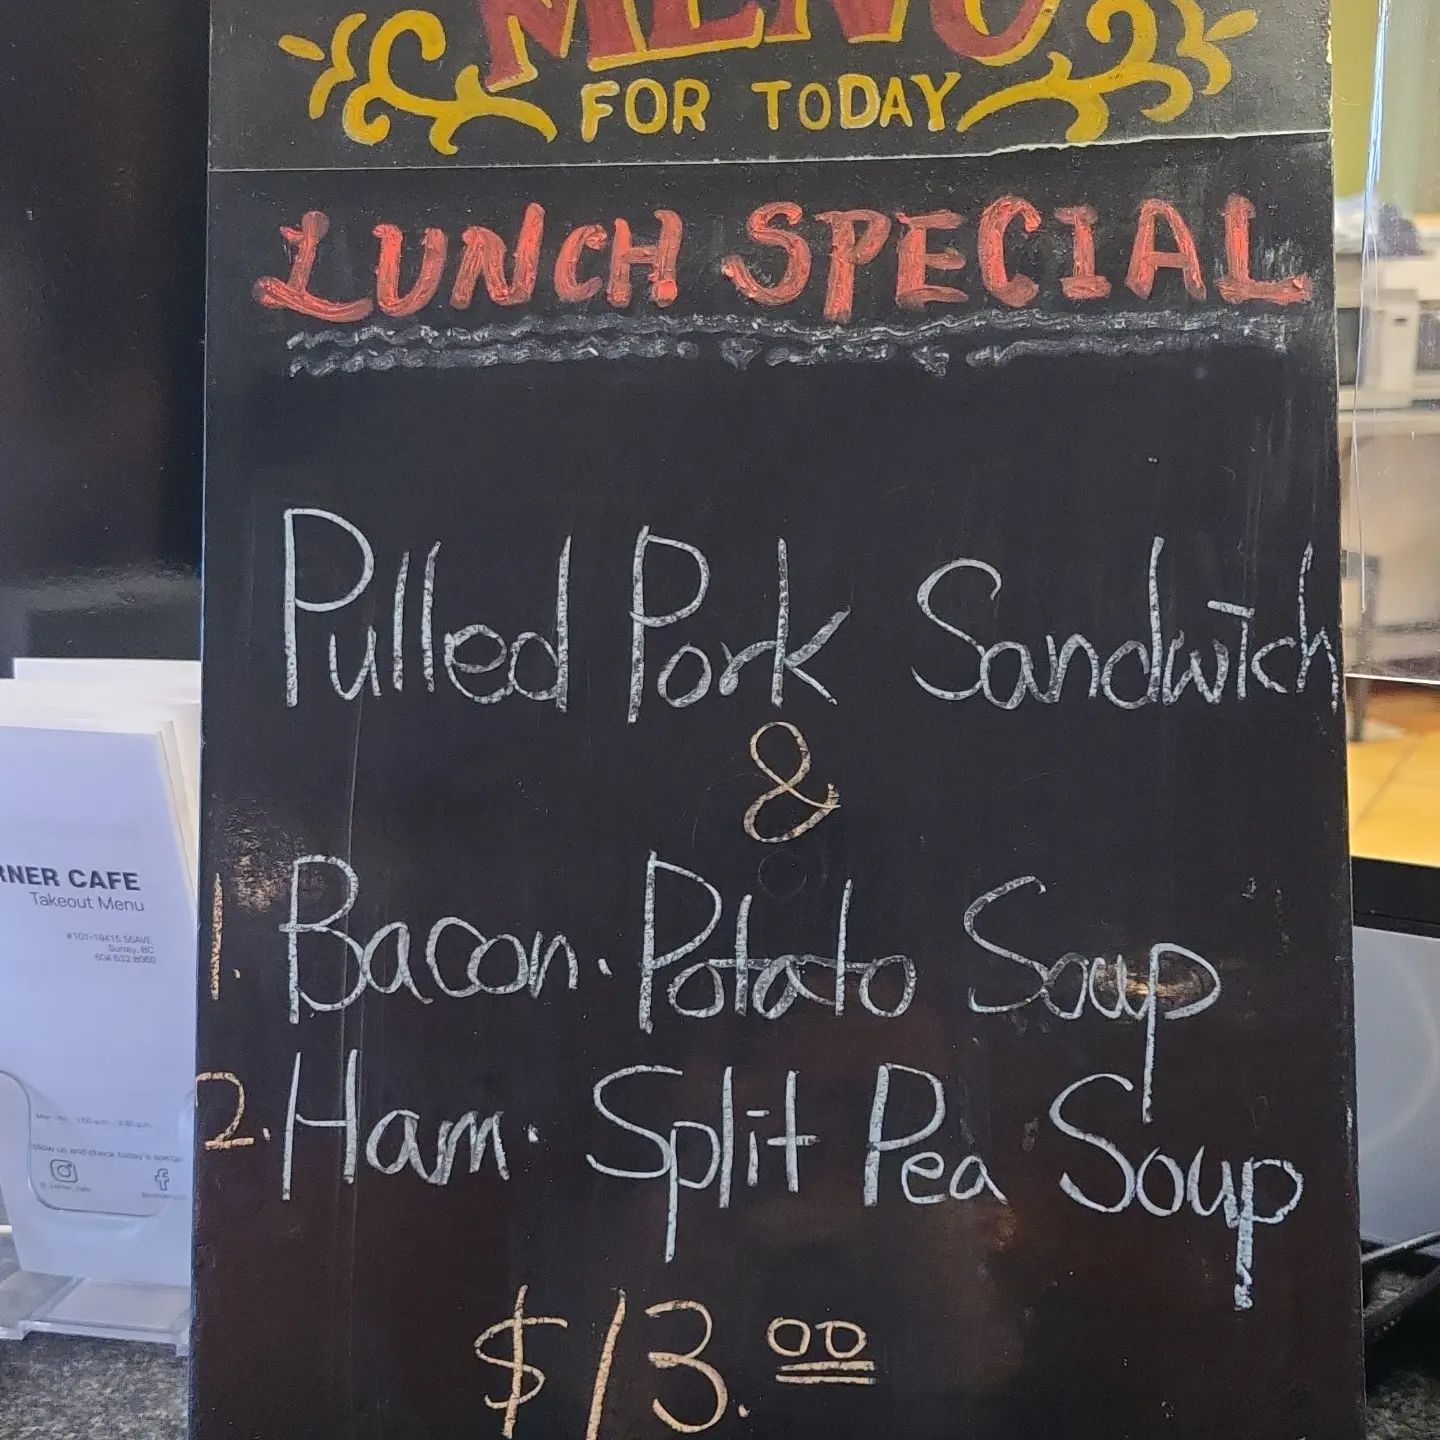 MENU
FOR TODAY
LUNCH SPECIAL
Pulled Pork Sandwich
&
1. Bacon. Potato Soup
2. Ham. Split Pea Soup
$13.00
RNER CAFE
Takeout Menu
#101-19415 56AVE
Surrey, BC
604 532 8060